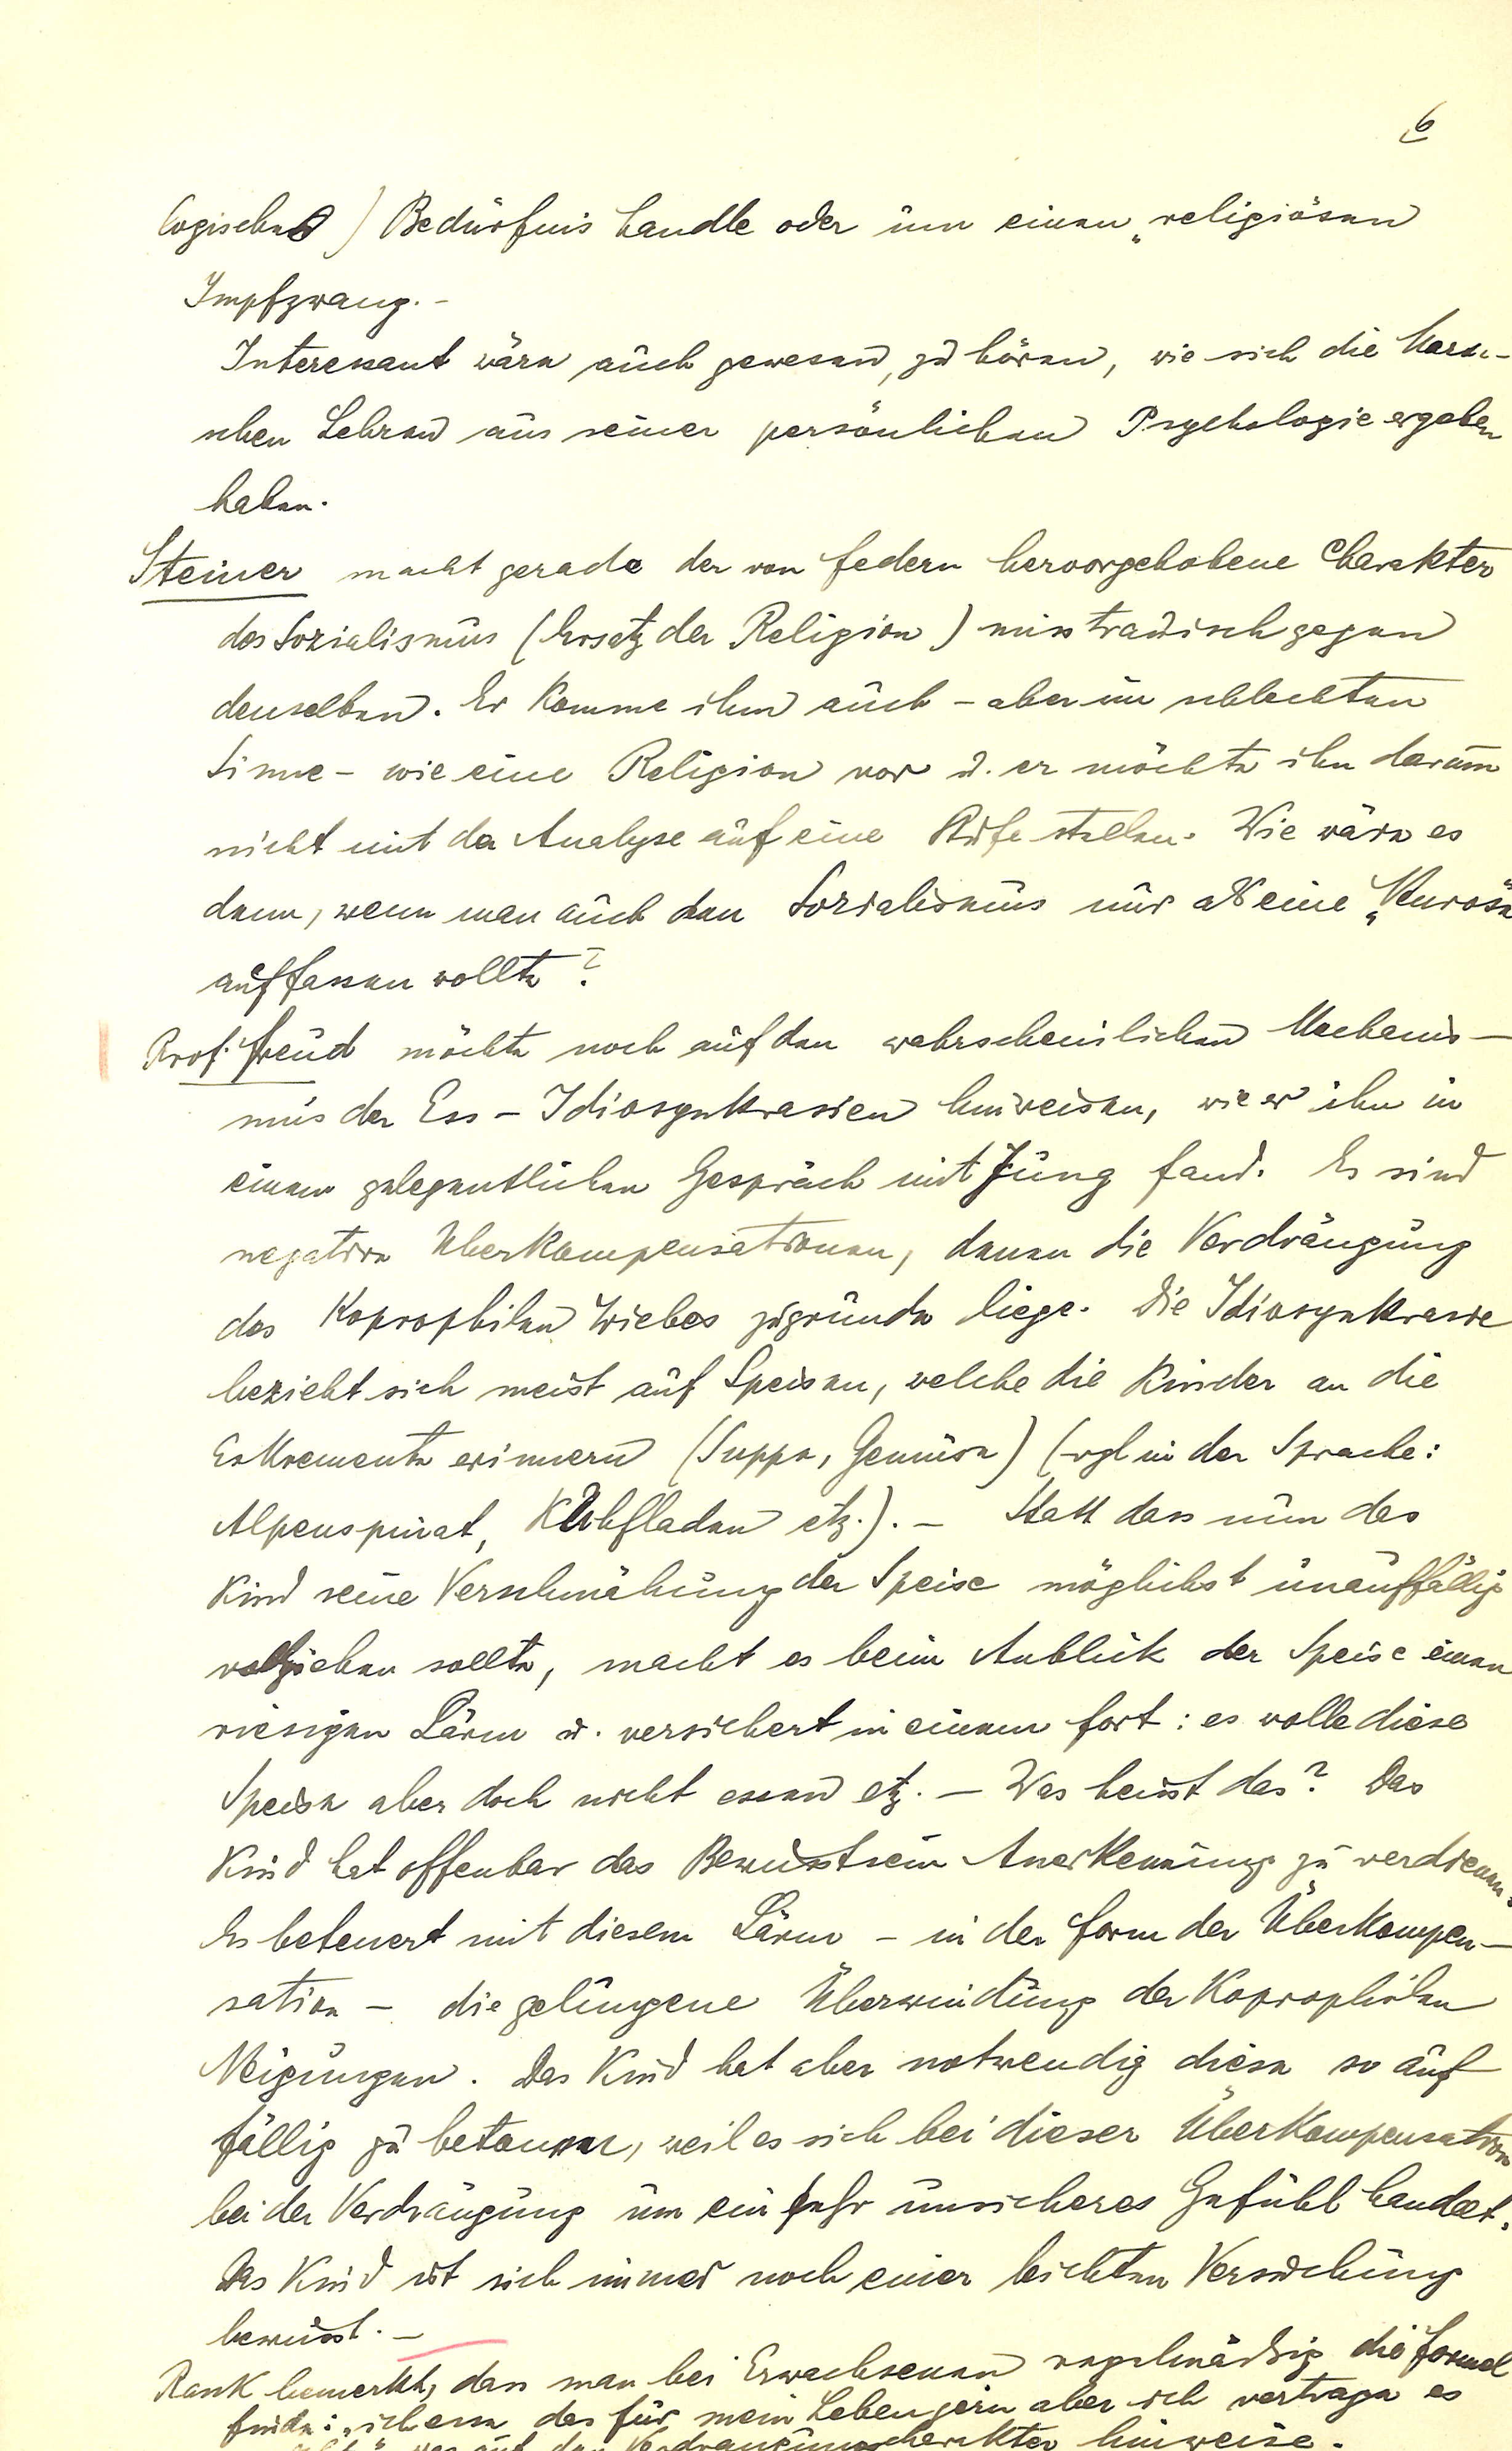 6
logisches) Bedürfnis handle oder um einen „religiösen
Impfzwang. –
Interessant wäre auch gewesen, zu hören, wie sich die Marx-
schen Lehren aus seiner persönlichen Psychologie ergeben
haben.
Steiner macht gerade der von Federn hervorgehobene Charakter
des Sozialismus (Ersatz der Religion) misstrauisch gegen
denselben. Er komme ihm auch – aber im schlechten
Sinne – wie eine Religion vor u. er möchte ihn darum
nicht mit der Analyse auf eine Stufe stellen. Wie wäre es
denn, wenn man auch den Sozialismus nur als eine „Neurose
auffassen wollte?
Prof. Freud möchte noch auf den wahrscheinlichen Mechanis-
mus der Ess-Idiosynkrasien hinweisen, wie er ihn in
einem gelegentlichen Gespräch mit Jung fand. Es sind
negative Überkompensationen, denen die Verdrängung
des koprophilen Triebes zugrunde liege. Die Idiosynkrasie
bezieht sich meist auf Speisen, welche die Kinder an die
Exkremente erinnern (Suppe, Gemüse) (vgl in der Sprache:
Alpenspinat, Kuhfladen etz.). – Statt dass nun das
Kind seine Verschmähung der Speise möglichst unauffällig
vollziehen sollte, macht es beim Anblick der Speise einen
riesigen Lärm u. versichert in einem fort: es wolle diese
Speise aber doch nicht essen etz. – Was heisst das? Das
Kind hat offenbar das Bewusstsein Anerkennung zu verdienen.
Es beteuert mit diesem Lärm – in der Form der Überkompen-
sation – die gelungene Überwindung der koprophilen
Neigungen. Das Kind hat aber notwendig diese so auf
fällig zu betonen, weil es sich bei dieser Überkompensation
bei der Verdrängung um ein sehr unsicheres Gefühl handelt.
Das Kind ist sich immer noch einer leichten Versuchung
bewusst. –
Rank bemerkt, dass man bei Erwachsenen regelmässig die Formel
finde: „ich esse das für mein Leben gern aber ich vertrage es
nicht" was auf den Verdrängungscharakter hinweise.